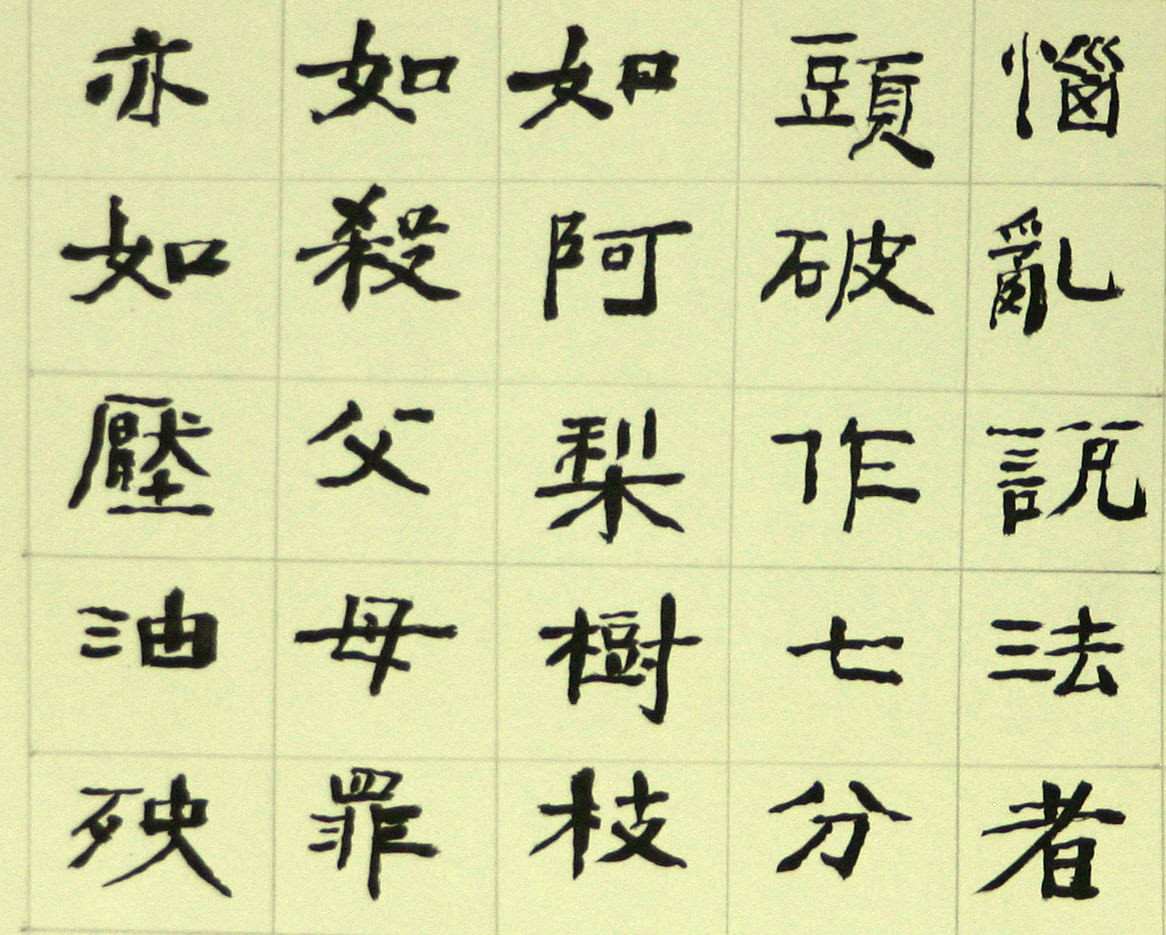 惱亂説法者
頭破作七分
如阿梨樹枝
如殺父母罪
亦如壓油殃